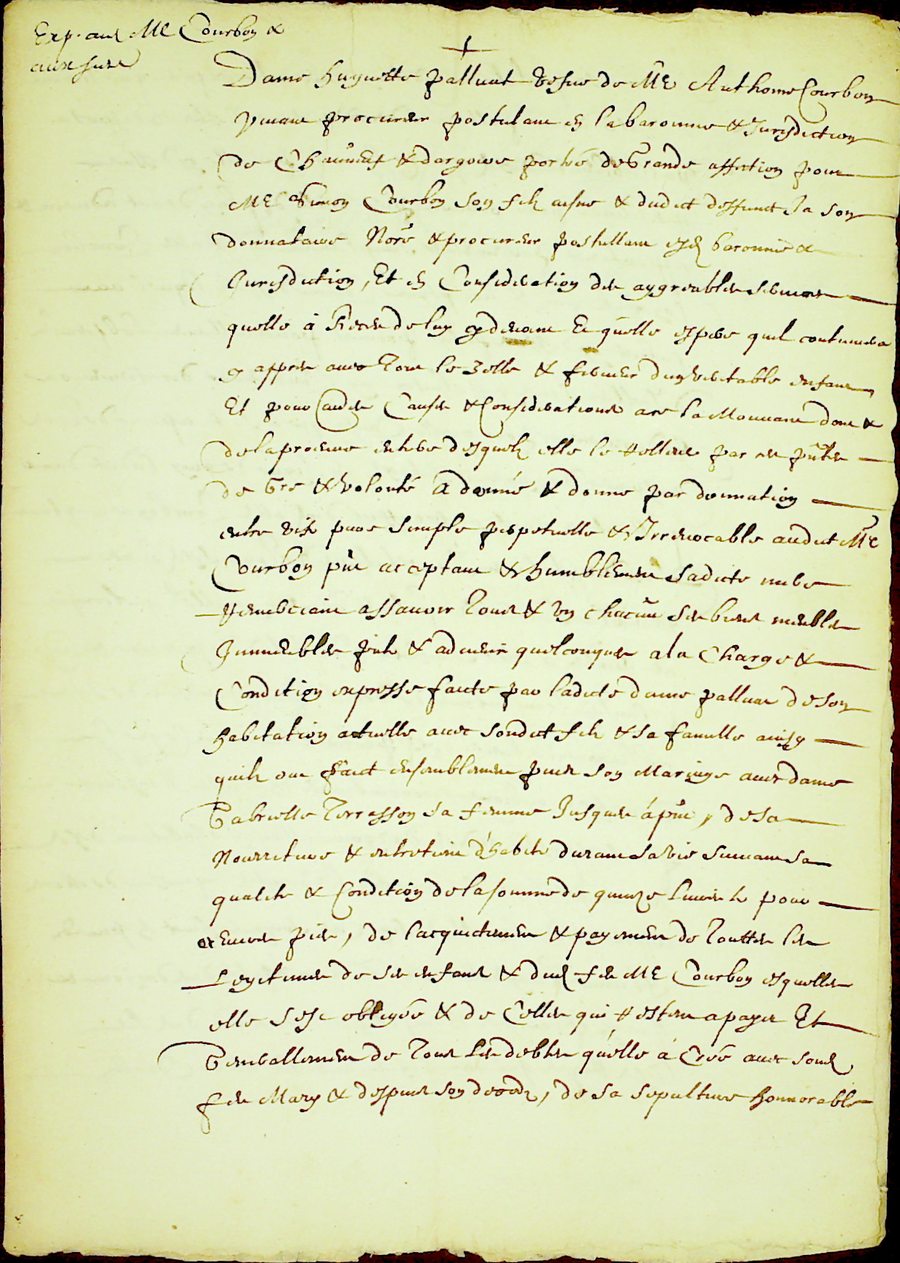 Exp. aud Me Courbon &
aux sura
Dame huguette palluat vefve de Me Anthoine Courbon
vivant procureur postulant en la baronnie & Jurisdiction
de & dargoire portée de Grande affection pour
Me Simon Courbon son filz aisne & dudict deffunct la son
donnataire Nore & procureur postullant esd baronnie &
Jurisdiction, Et en Consideration des aggreables services
quelle à Receu de luy cydevant Et quelle espere quil continuera
cy appres avec tout le zelle & ferveur dung veritable enfant,
Et pour autres Causes & Considerations ace la Mouvant dont &
de la preuve entiere desquels elle le Relleve par ces pntes
de Gre & volonté a donné & donne par donnation
entre vifz pure simple perpetuelle & Irrevocable audict Me
Courbon pnt acceptant & humblement sadicte mere
Remerciant assavoir tous & un chacun ses biens meubles
Immeubles pnts & advenir quelconques a la Charge &
Condition expresse faicte par ladicte dame palluat de son
habitation actuelle avec sondict filz & sa famille ainsy
quilz ont faict ensemblement puis son Mariage avec dame
Gabrielle Terrasson sa femme Jusques à pnt, de sa
Nourriture & entretien d'habits durant sa vie suivant sa
qualité & Condition de la somme de quinze livres pour
œuvres pies, de lacquictement & payement de touttes les
Legitimes de ses enfans & dud feu Me Courbon esquelles
elle sest obligée & de Celles qui Restent a payer Et
Gerallement de tous les debtes quelle à Créé avec soud
feu Mary & despuis son deces, de sa sepulture honnorable